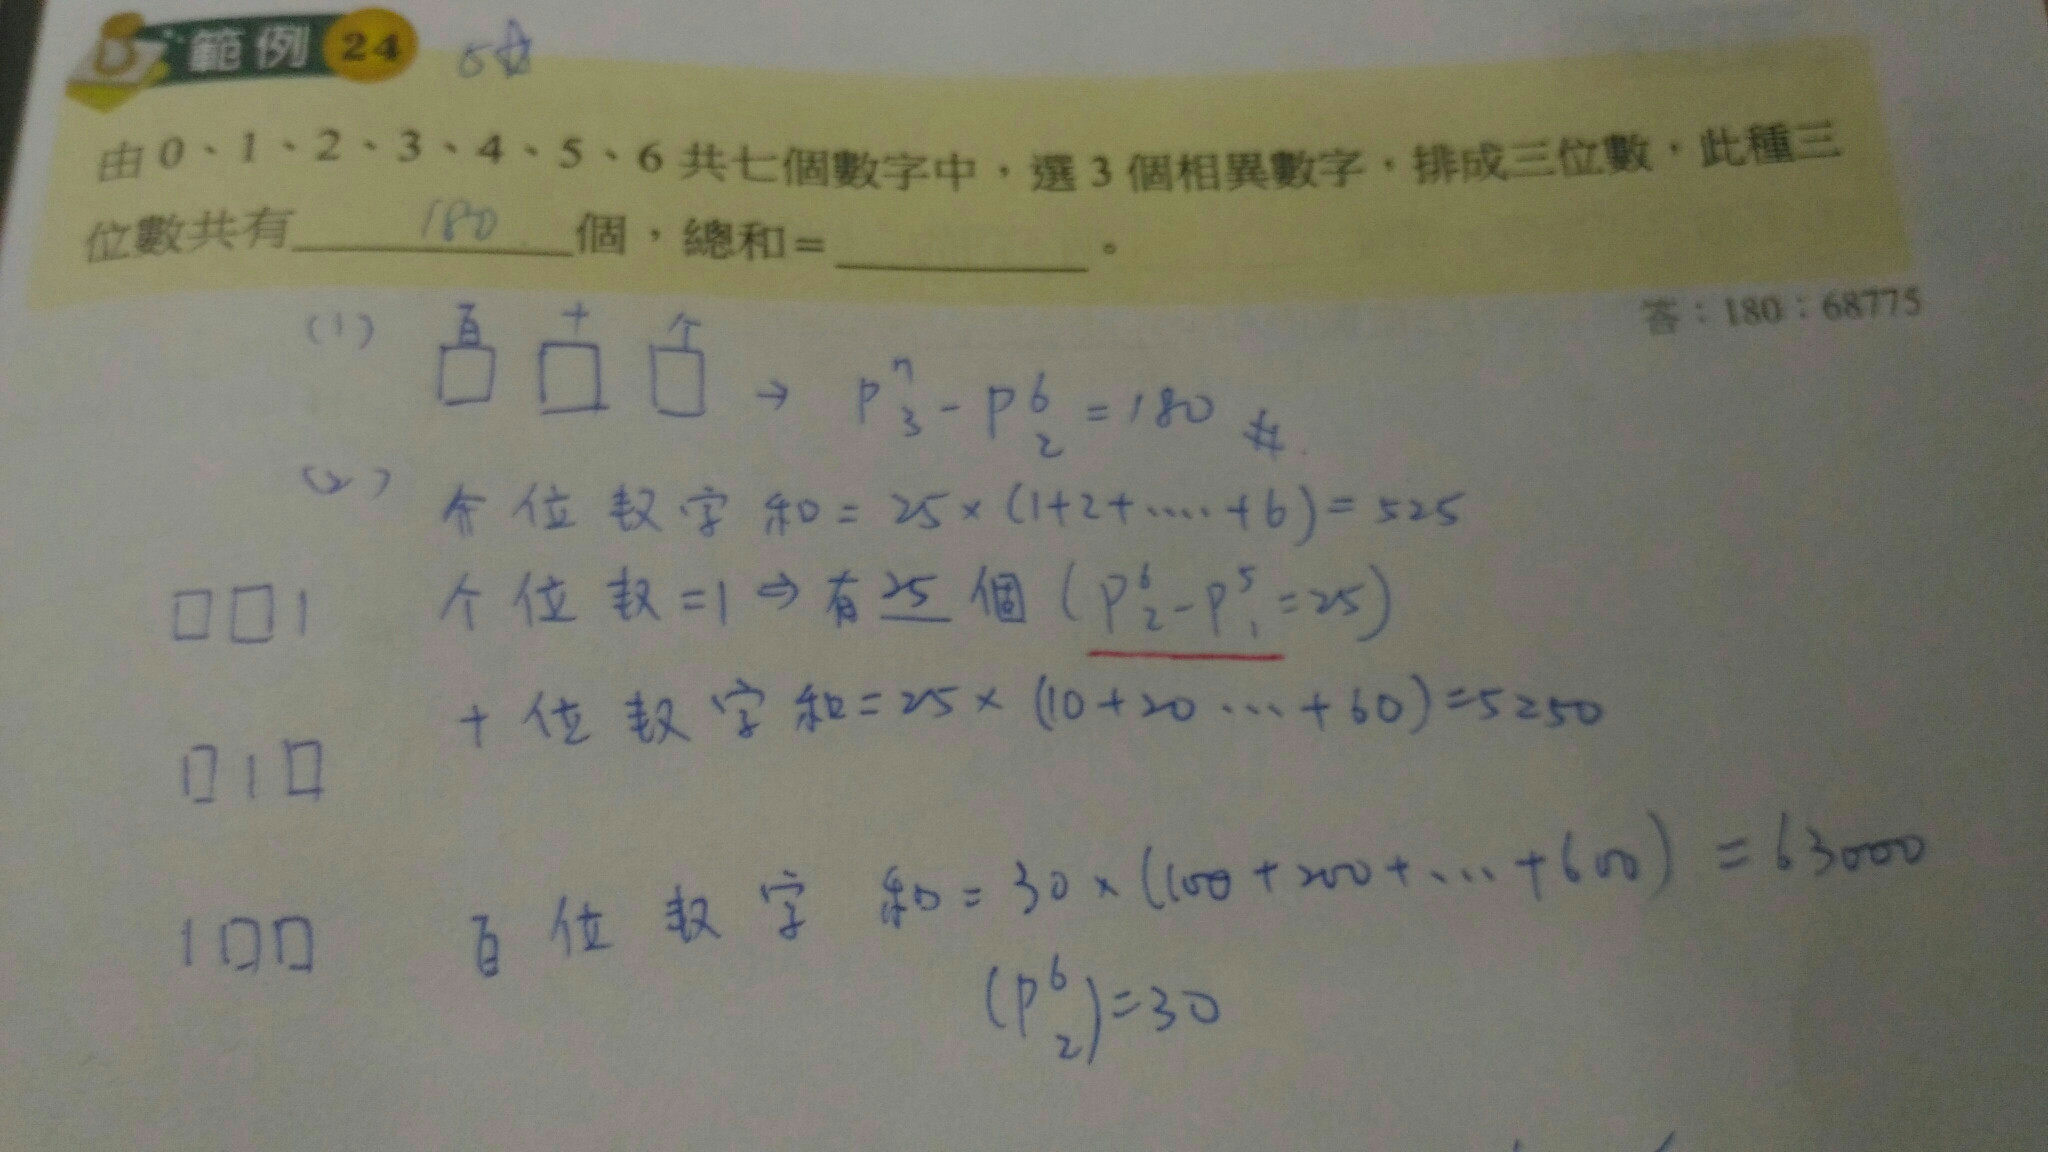 範例 24 5☆
由 0、1、2、3、4、5、6 共七個數字中，選 3 個相異數字，排成三位數，此種三
位數共有 180 個，總和= 。
答：180；68775
(1) 百 十 个
□ □ □ → P⁷₃ - P⁶₂ = 180 #
(2) 个位数字和 = 25 × (1+2+....+6) = 525
□□1 个位数=1 ⇒ 有 25 個 (P⁶₂ - P⁵₁ = 25)
十位数字和 = 25 × (10+20...+60) = 5250
□1□
1□□ 百位数字和 = 30 × (100+200+...+600) = 63000
(P⁶₂) = 30